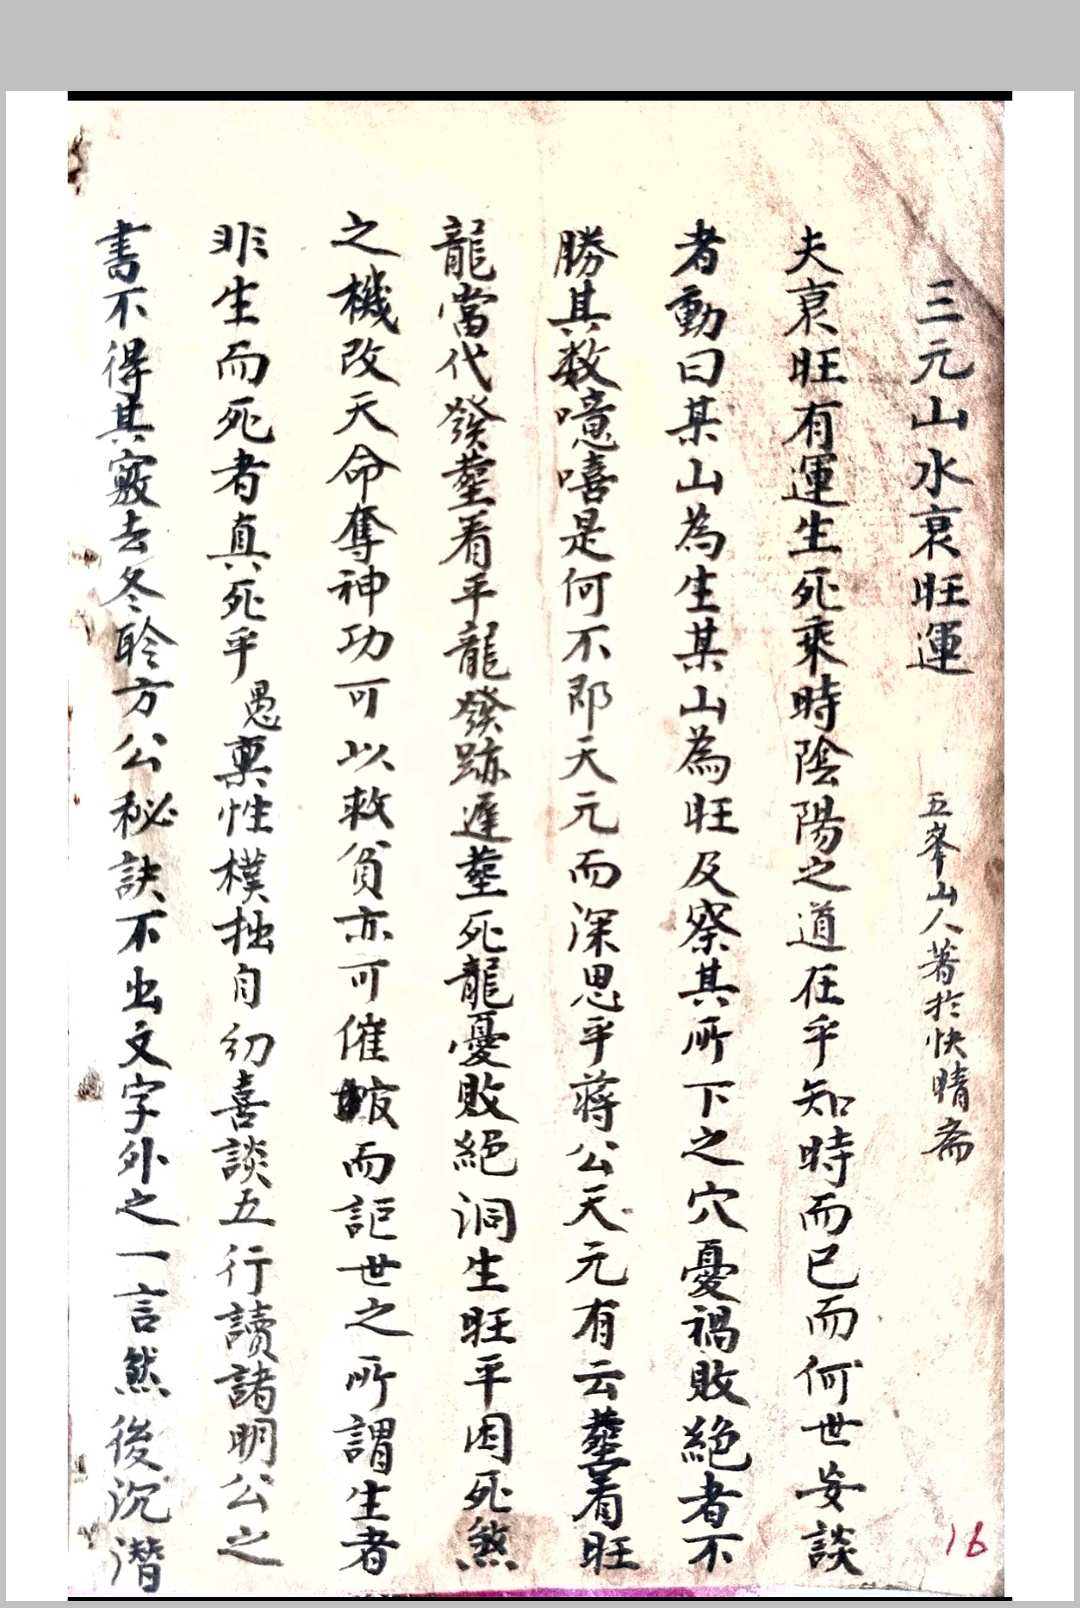 三元山水衰旺運 五峯山人著於快晴斋
夫衰旺有運生死乘時陰陽之道在乎知時而已而何世妄談
者動曰某山為生某山為旺及察其所下之穴憂禍敗絕者不
勝其数噫嘻是何不即天元而深思乎蔣公天元有云塟着旺
龍當代發塟着平龍發跡遲塟死龍憂敗絕洞生旺平囚死煞
之機改天命奪神功可以救貧亦可催而詎世之所謂生者
非生而死者真死乎愚稟性樸拙自幼喜談五行讀諸明公之
書不得其竅去冬聆方公秘訣不出文字外之一言然後沉潛
16